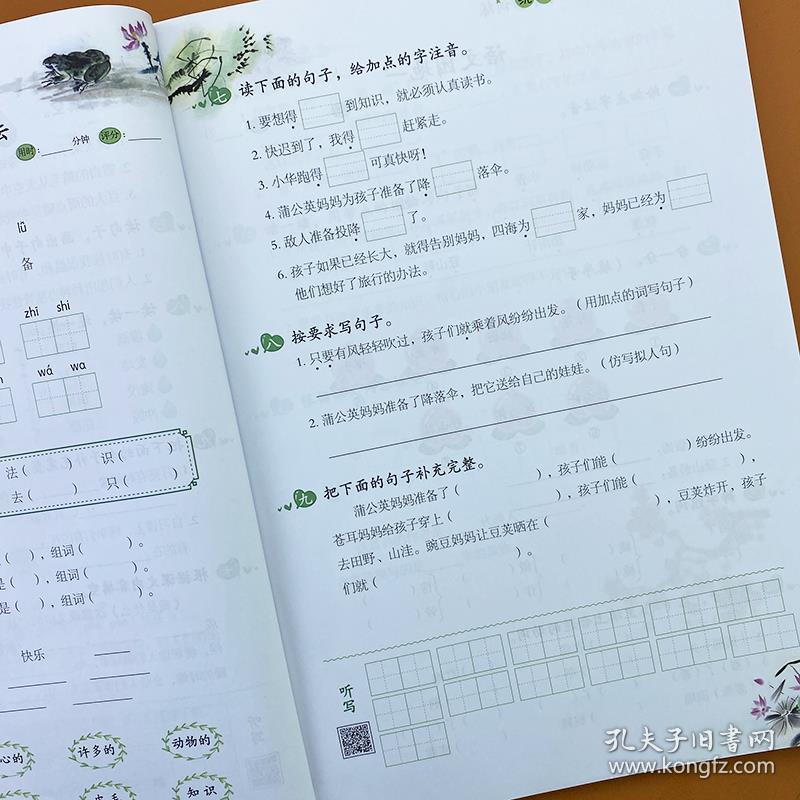 用时：____分钟 评分：____
lǜ
备
zhǐ shi
wá wa
法（ ） 识（ ）
去（ ） 只（ ）
（ ），组词（ ）。
是（ ），组词（ ）。
是（ ），组词（ ）。
快乐
心的 许多的 动物的
知识
七 读下面的句子，给加点的字注音。
1. 要想得 到知识，就必须认真读书。
2. 快迟到了，我得 赶紧走。
3. 小华跑得 可真快呀！
4. 蒲公英妈妈为孩子准备了降 落伞。
5. 敌人准备投降 了。
6. 孩子如果已经长大，就得告别妈妈，四海为 家，妈妈已经为
他们想好了旅行的办法。
八 按要求写句子。
1. 只要有风轻轻吹过，孩子们就乘着风纷纷出发。（用加点的词写句子）
2. 蒲公英妈妈准备了降落伞，把它送给自己的娃娃。（仿写拟人句）
九 把下面的句子补充完整。
蒲公英妈妈准备了（ ），孩子们能（ ）纷纷出发。
苍耳妈妈给孩子穿上（ ），孩子们能（ ），
去田野、山洼。豌豆妈妈让豆荚晒在（ ），豆荚炸开，孩子
们就（ ）。
听写
孔夫子旧书网
www.kongfz.com